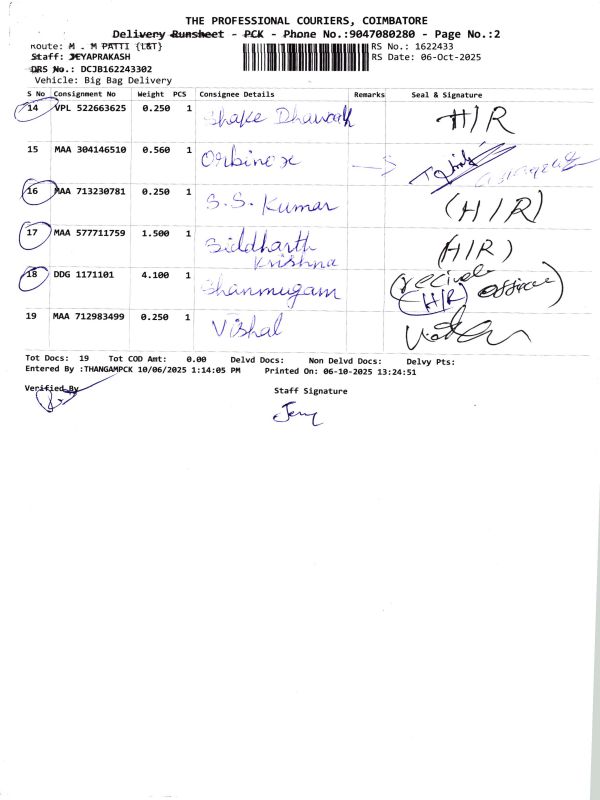 THE PROFESSIONAL COURIERS, COIMBATORE
Delivery Runsheet - PCK - Phone No.:9047080280 - Page No.:2
Route: M - M PATTI {L&T}
RS No.: 1622433
Staff: JEYAPRAKASH
RS Date: 06-Oct-2025
DRS No.: DCJB162243302
Vehicle: Big Bag Delivery
S No Consignment No Weight PCS Consignee Details Remarks Seal & Signature
14 VPL 522663625 0.250 1 Shake Dhawak H/R
15 MAA 304146510 0.560 1 Orbinox
16 MAA 713230781 0.250 1 S.S. Kumar (H/R)
17 MAA 577711759 1.500 1 Siddharth Krishna (H/R)
18 DDG 1171101 4.100 1 Shanmugam (H/R)
19 MAA 712983499 0.250 1 Vishal
Tot Docs: 19 Tot COD Amt: 0.00 Delvd Docs: Non Delvd Docs: Delvy Pts:
Entered By :THANGAMPCK 10/06/2025 1:14:05 PM Printed On: 06-10-2025 13:24:51
Verified By
Staff Signature